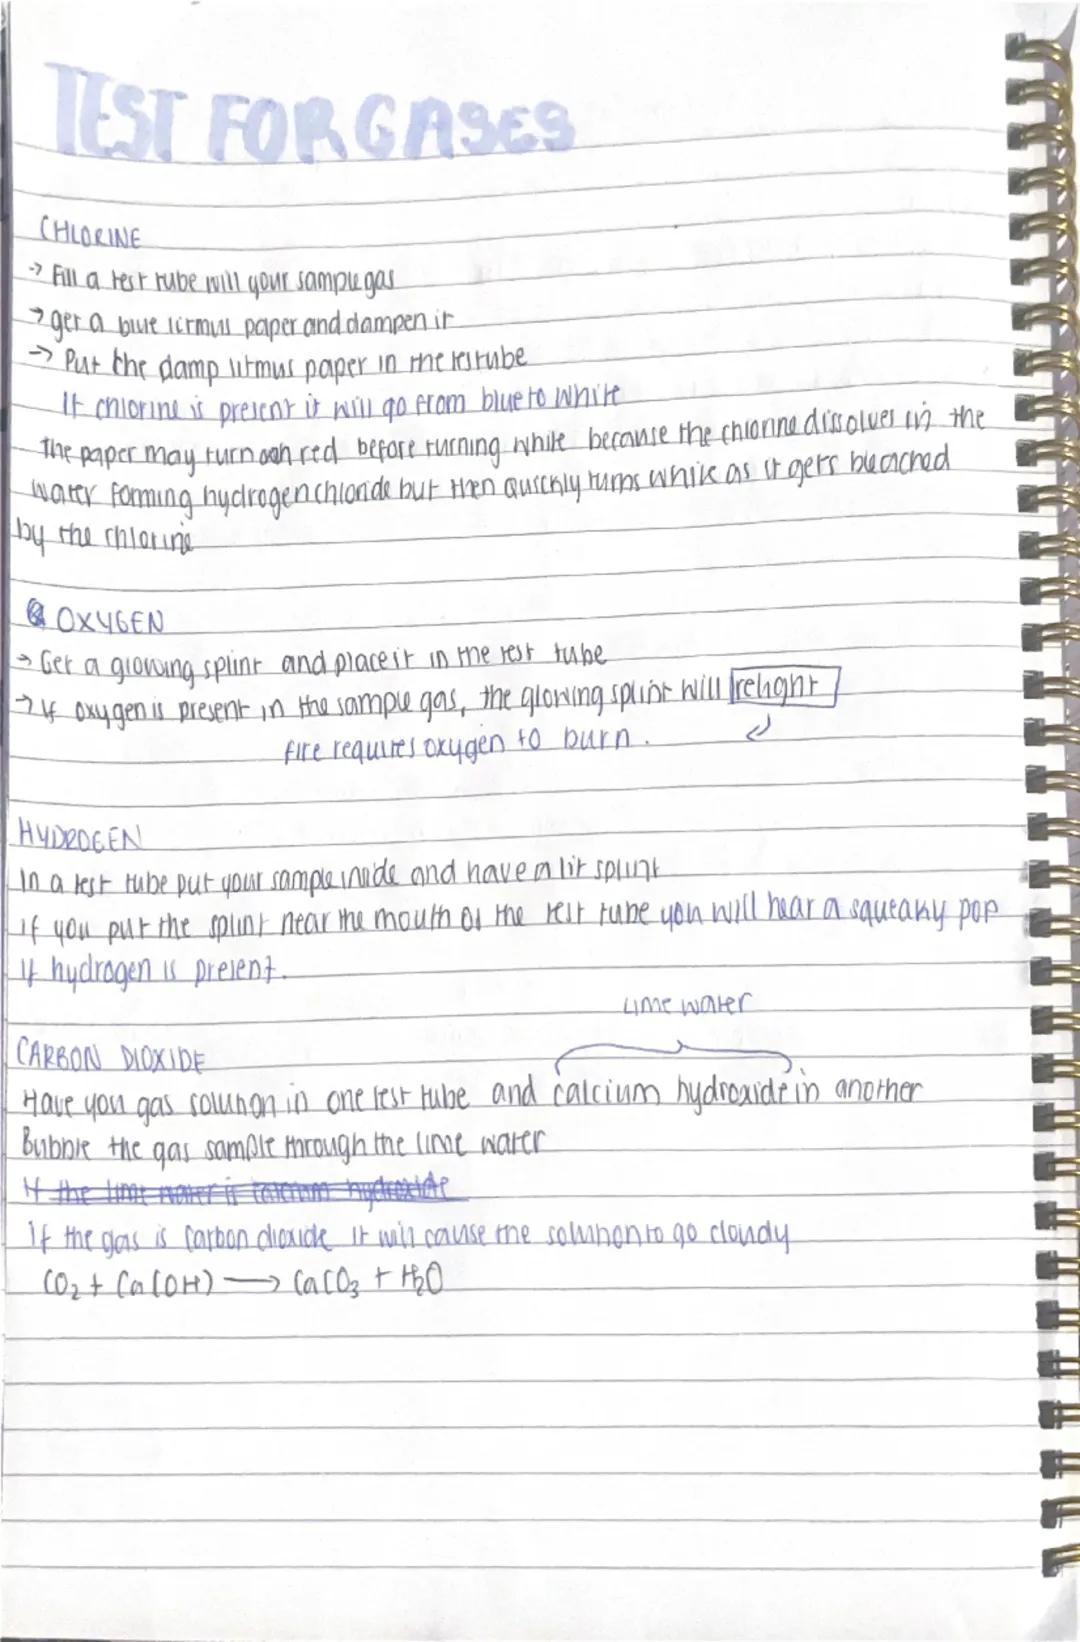 TEST FOR GASES
CHLORINE
-> Fill a test tube will your sample gas
-> get a blue litmus paper and dampen it
-> Put the damp litmus paper in the testube
If chlorine is present it will go from blue to white
The paper may turn red before turning white because the chlorine dissolves in the
water forming hydrogen chloride but then quickly turns white as it gets bleached
by the chlorine
OXYGEN
-> Get a glowing splint and place it in the test tube
-> If oxygen is present in the sample gas, the glowing splint will relight
fire requires oxygen to burn.
HYDROGEN
In a test tube put your sample inside and have a lit splint
if you put the splint near the mouth of the test tube you will hear a squeaky pop
if hydrogen is present.
Lime water
CARBON DIOXIDE
Have you gas solution in one test tube and calcium hydroxide in another
Bubble the gas sample through the lime water
If the lime water is calcium hydroxide
If the gas is carbon dioxide it will cause the solution to go cloudy
CO₂ + Ca(OH) → CaCO₃ + H₂O